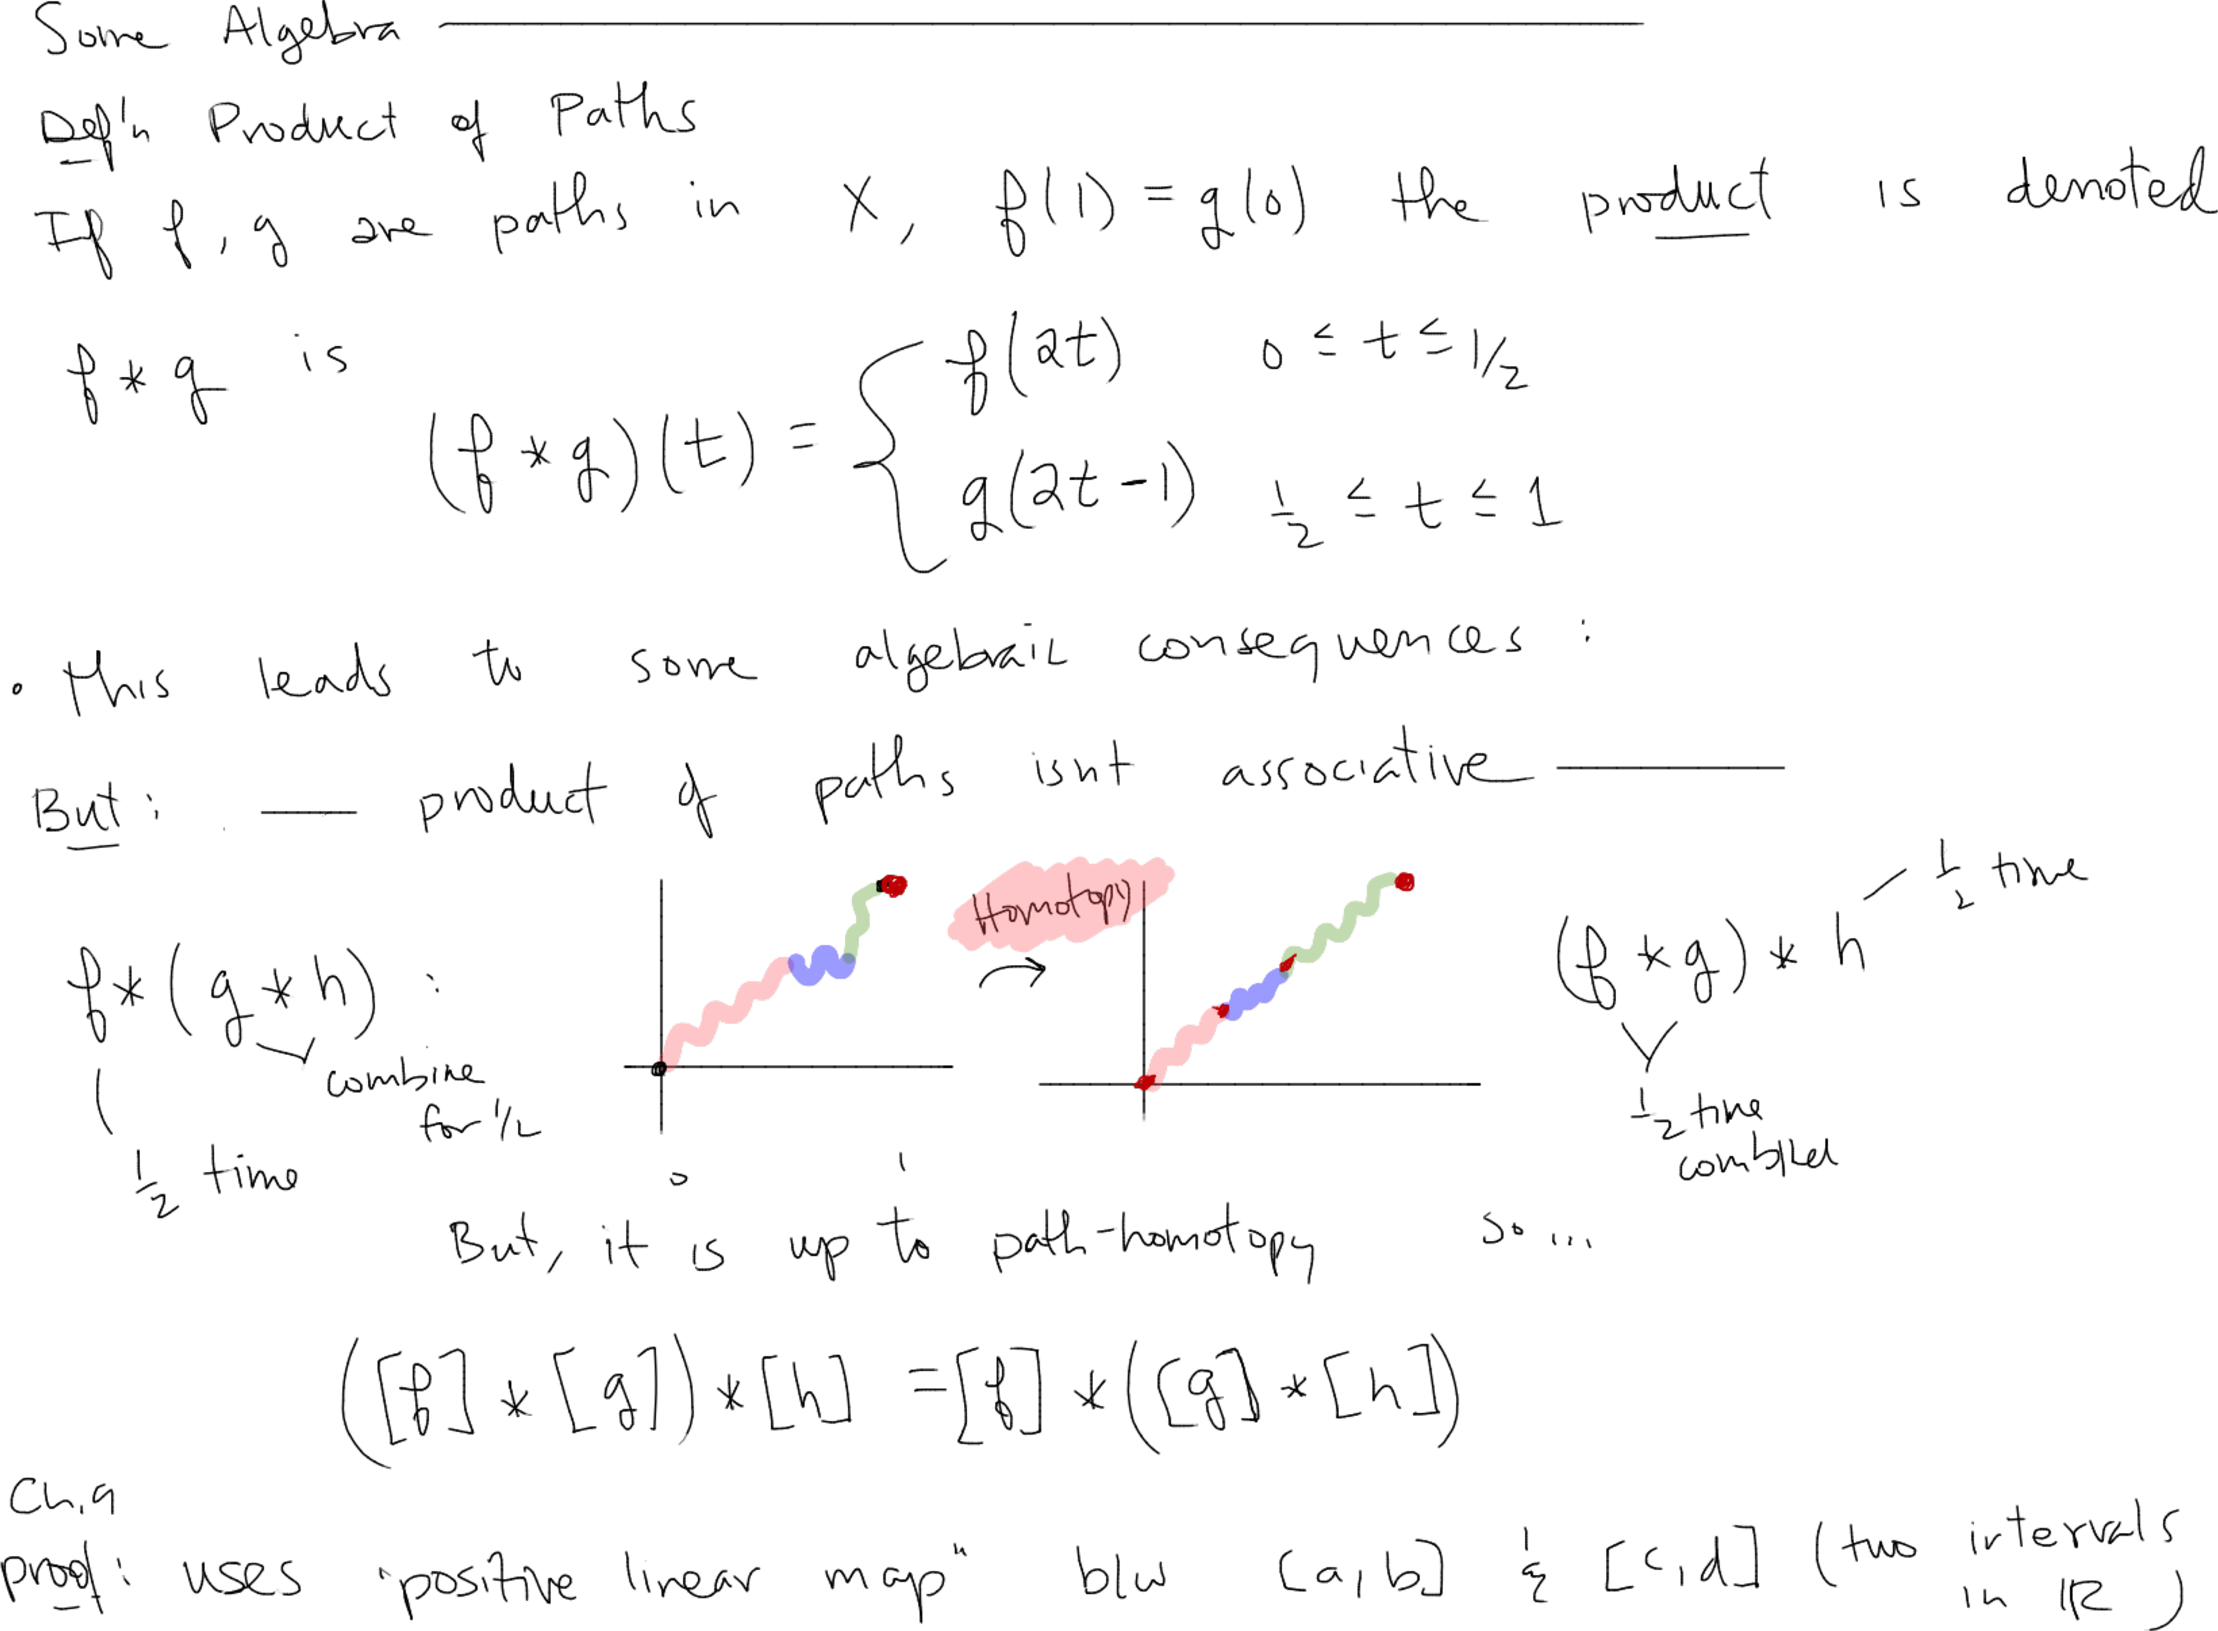 Some Algebra
Def'n Product of Paths
If f, g are paths in X, f(1) = g(0) the product is denoted
f * g is
(f * g)(t) = { f(2t) 0 ≤ t ≤ 1/2
g(2t-1) 1/2 ≤ t ≤ 1
• this leads to some algebraic consequences :
But: — product of paths isnt associative —
Homotopy
f * (g * h) :
combine
for 1/2
1/2 time
0 1
(f * g) * h
1/2 time
1/2 time
combined
But, it is up to path-homotopy so ...
([f] * [g]) * [h] = [f] * ([g] * [h])
Ch.9
proof: uses "positive linear map" b/w [a,b] & [c,d] (two intervals
in ℝ)